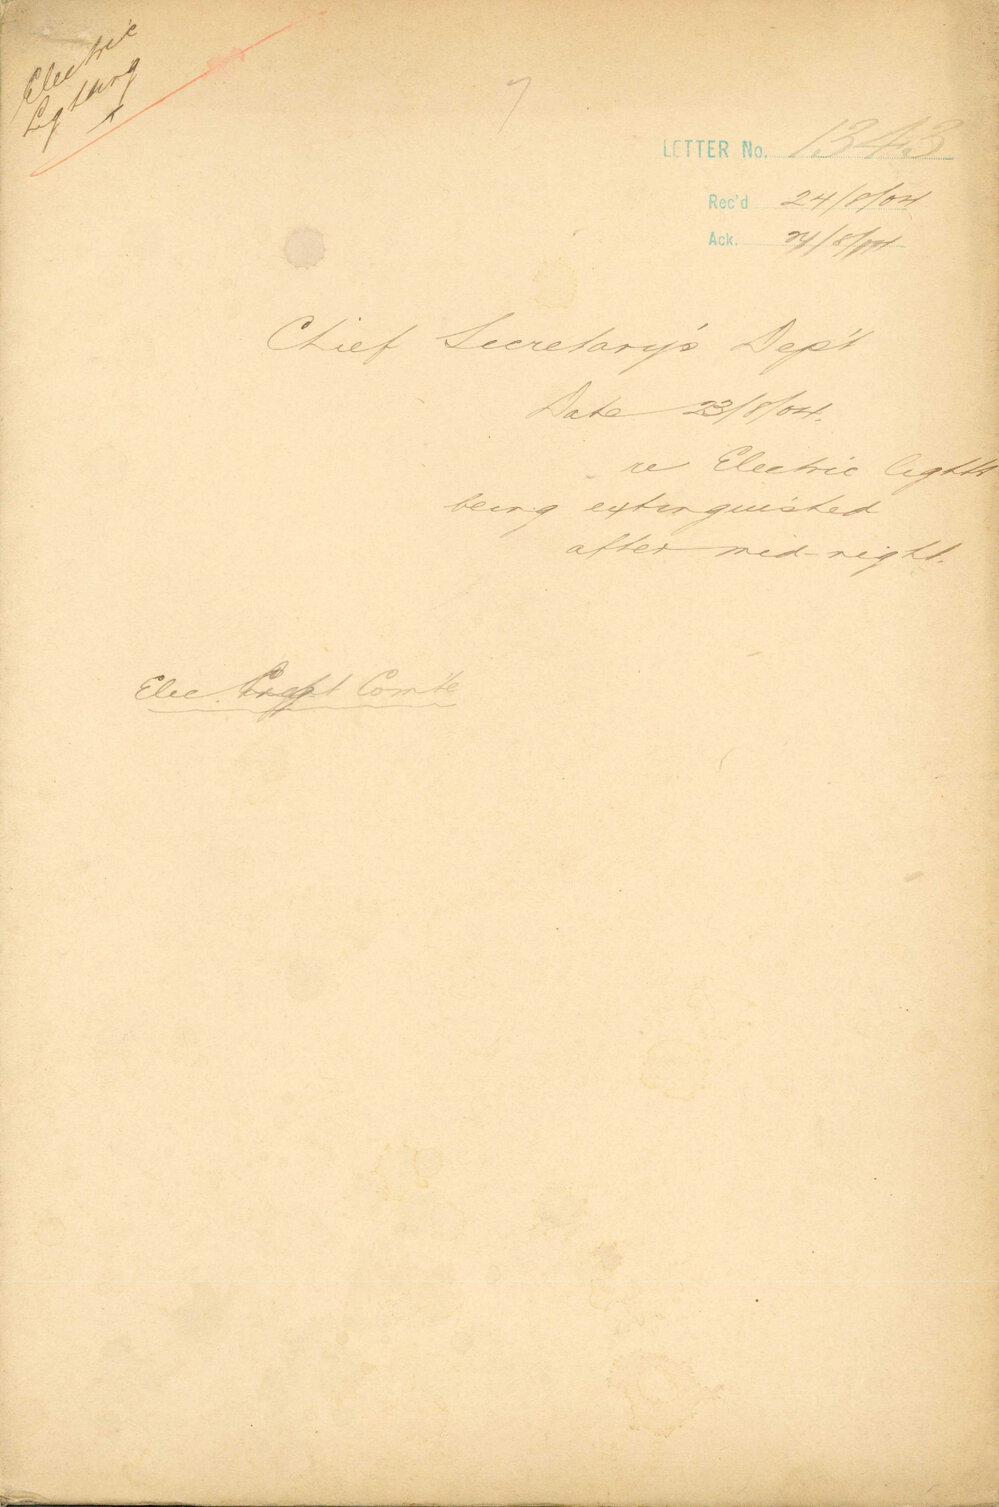 Electric
Lighting
LETTER No. 1343
Rec'd 24/8/04
Ack. 24/8/04
Chief Secretary's Dep't
Date 23/8/04.
re Electric lights
being extinguished
after mid-night.
Elec. Comte